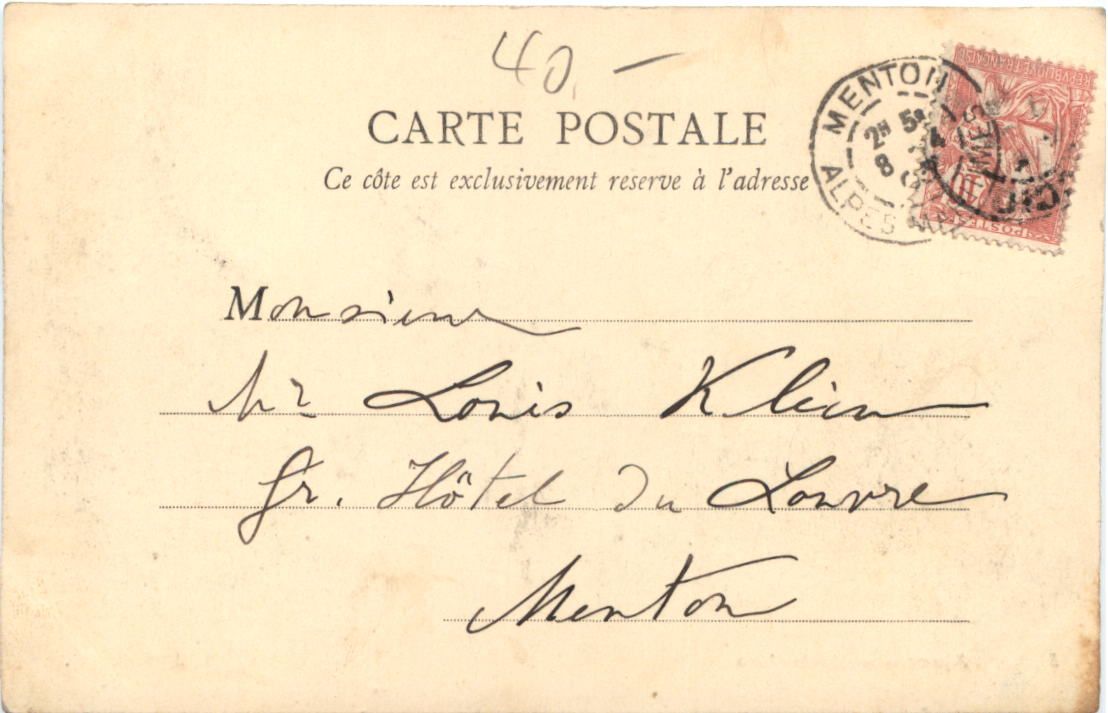 40.-
CARTE POSTALE
Ce côte est exclusivement reserve à l'adresse
MENTON
2H 5M
8
ALPES M
REPUBLIQUE FRANÇAISE
10
POSTES
Monsieur
Mr Louis Klein
Gr. Hôtel du Louvre
Menton